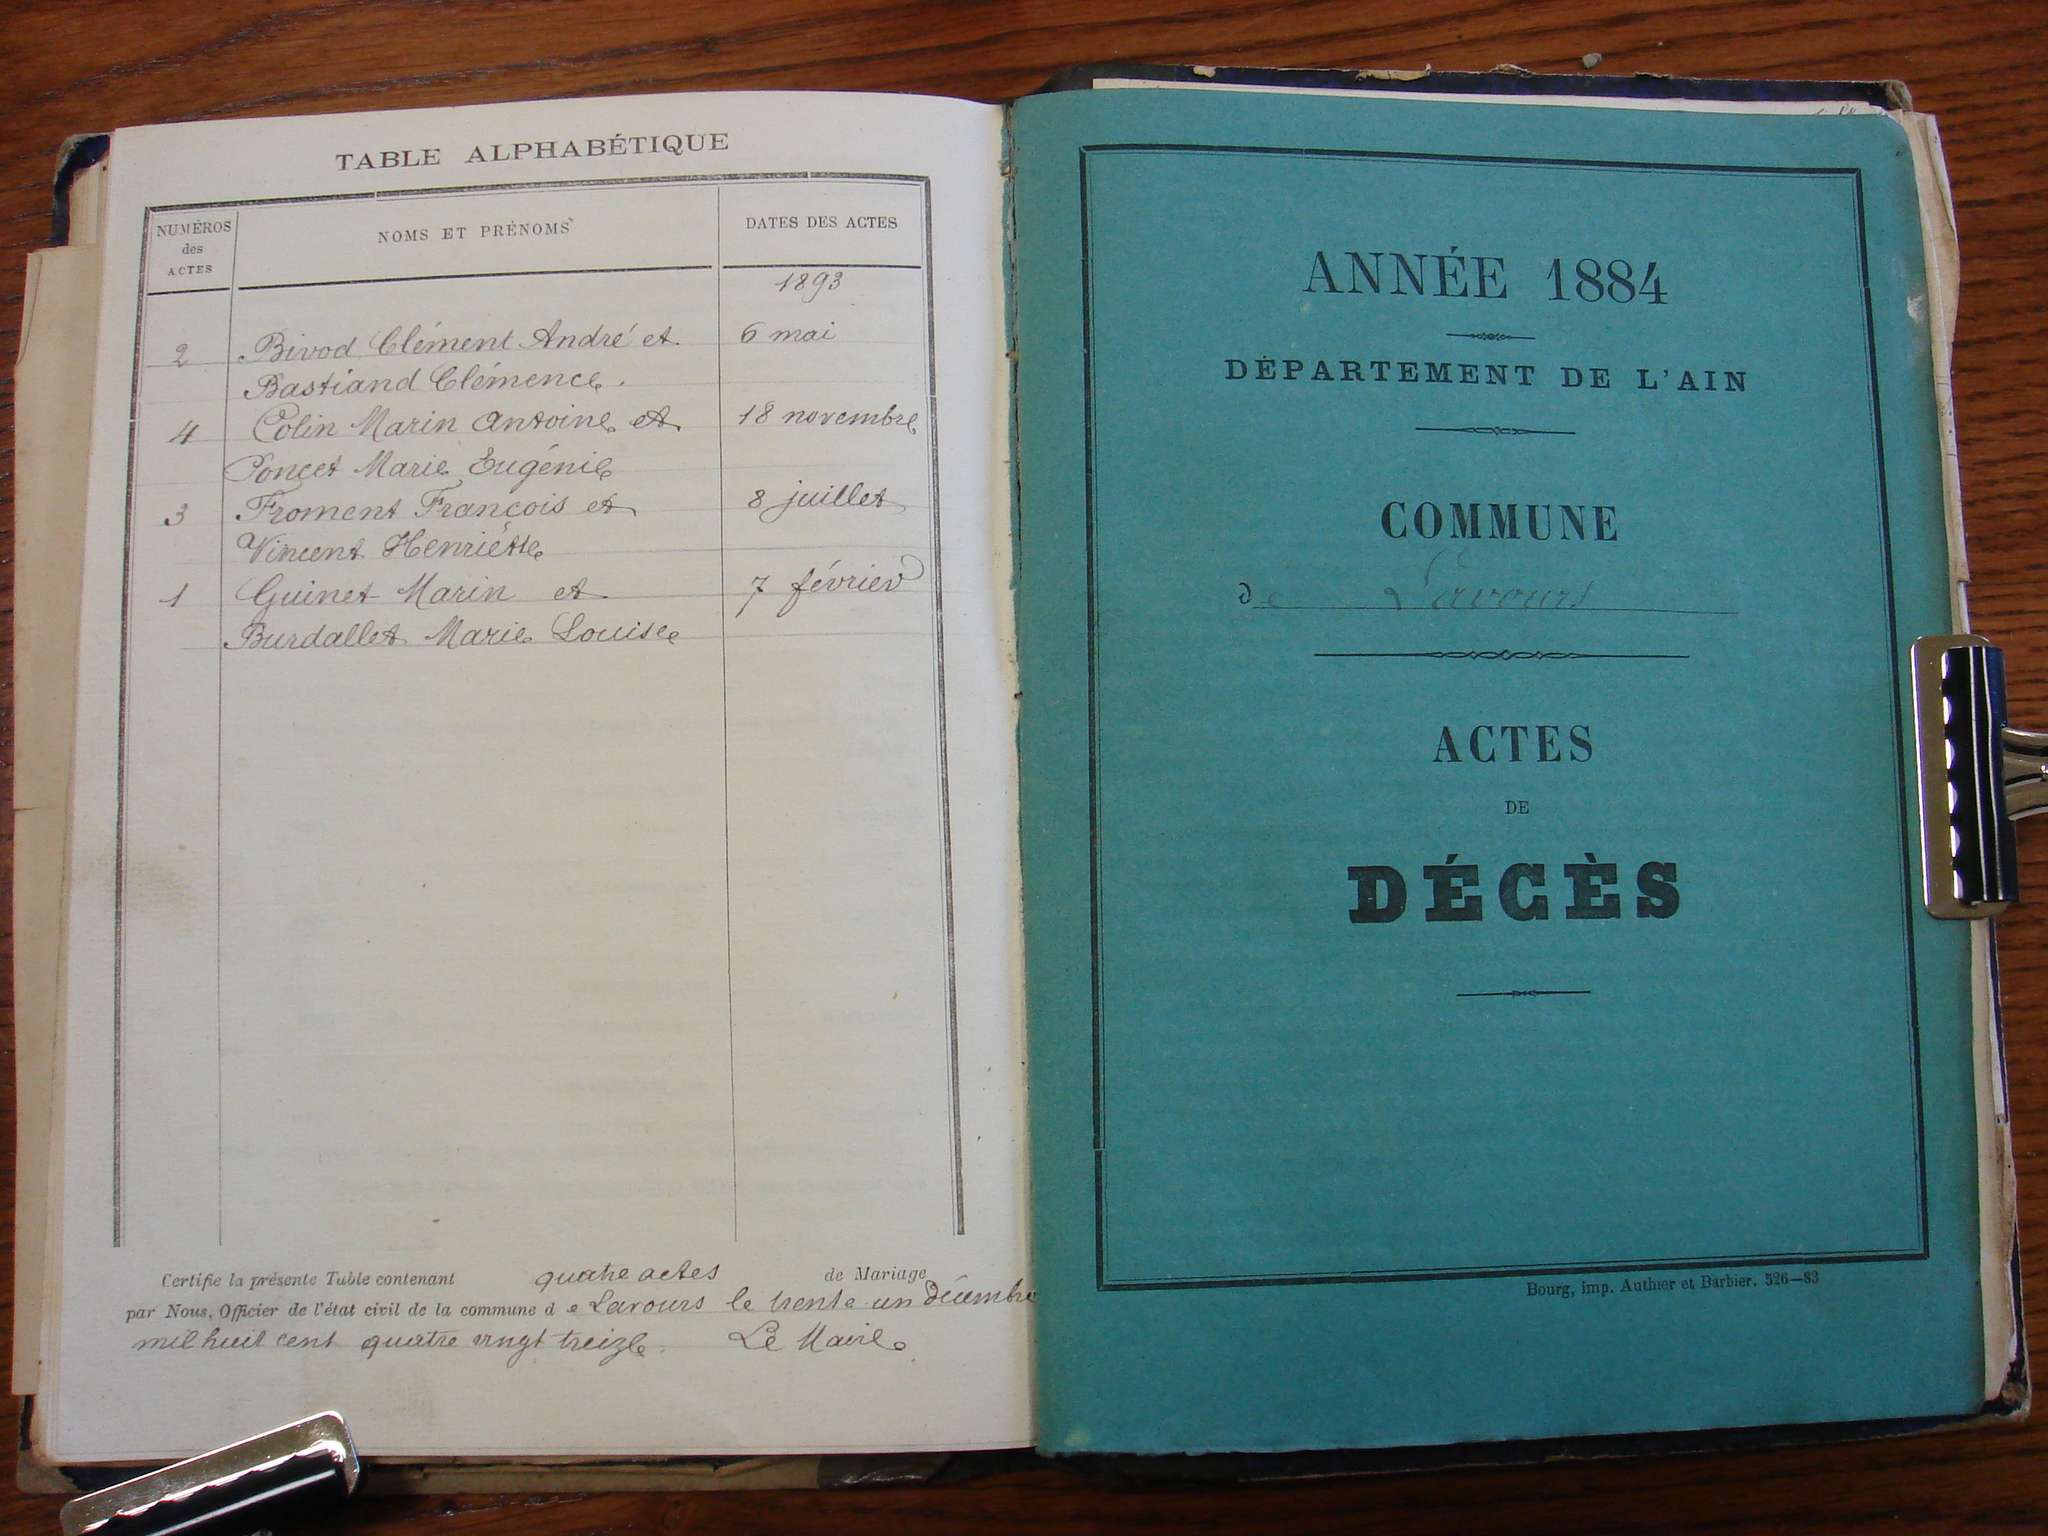 TABLE ALPHABÉTIQUE
NUMÉROS des ACTES
NOMS ET PRÉNOMS
DATES DES ACTES
1893
2 Bivod Clément André et 6 mai
Bastiand Clémence.
4 Colin Marin Antoine et 18 novembre
Poncet Marie Eugénie
3 Froment François et 8 juillet
Vincent Henriette
1 Guinet Marin et 7 février
Burdallet Marie Louise
Certifie la présente Table contenant quatre actes de Mariage
par Nous, Officier de l'état civil de la commune de Lavours le trente un décembre
mil huit cent quatre vingt treize. Le Maire
ANNÉE 1884
DÉPARTEMENT DE L'AIN
COMMUNE
de Lavours
ACTES
DE
DÉCÈS
Bourg, imp. Authier et Barbier. 526—83